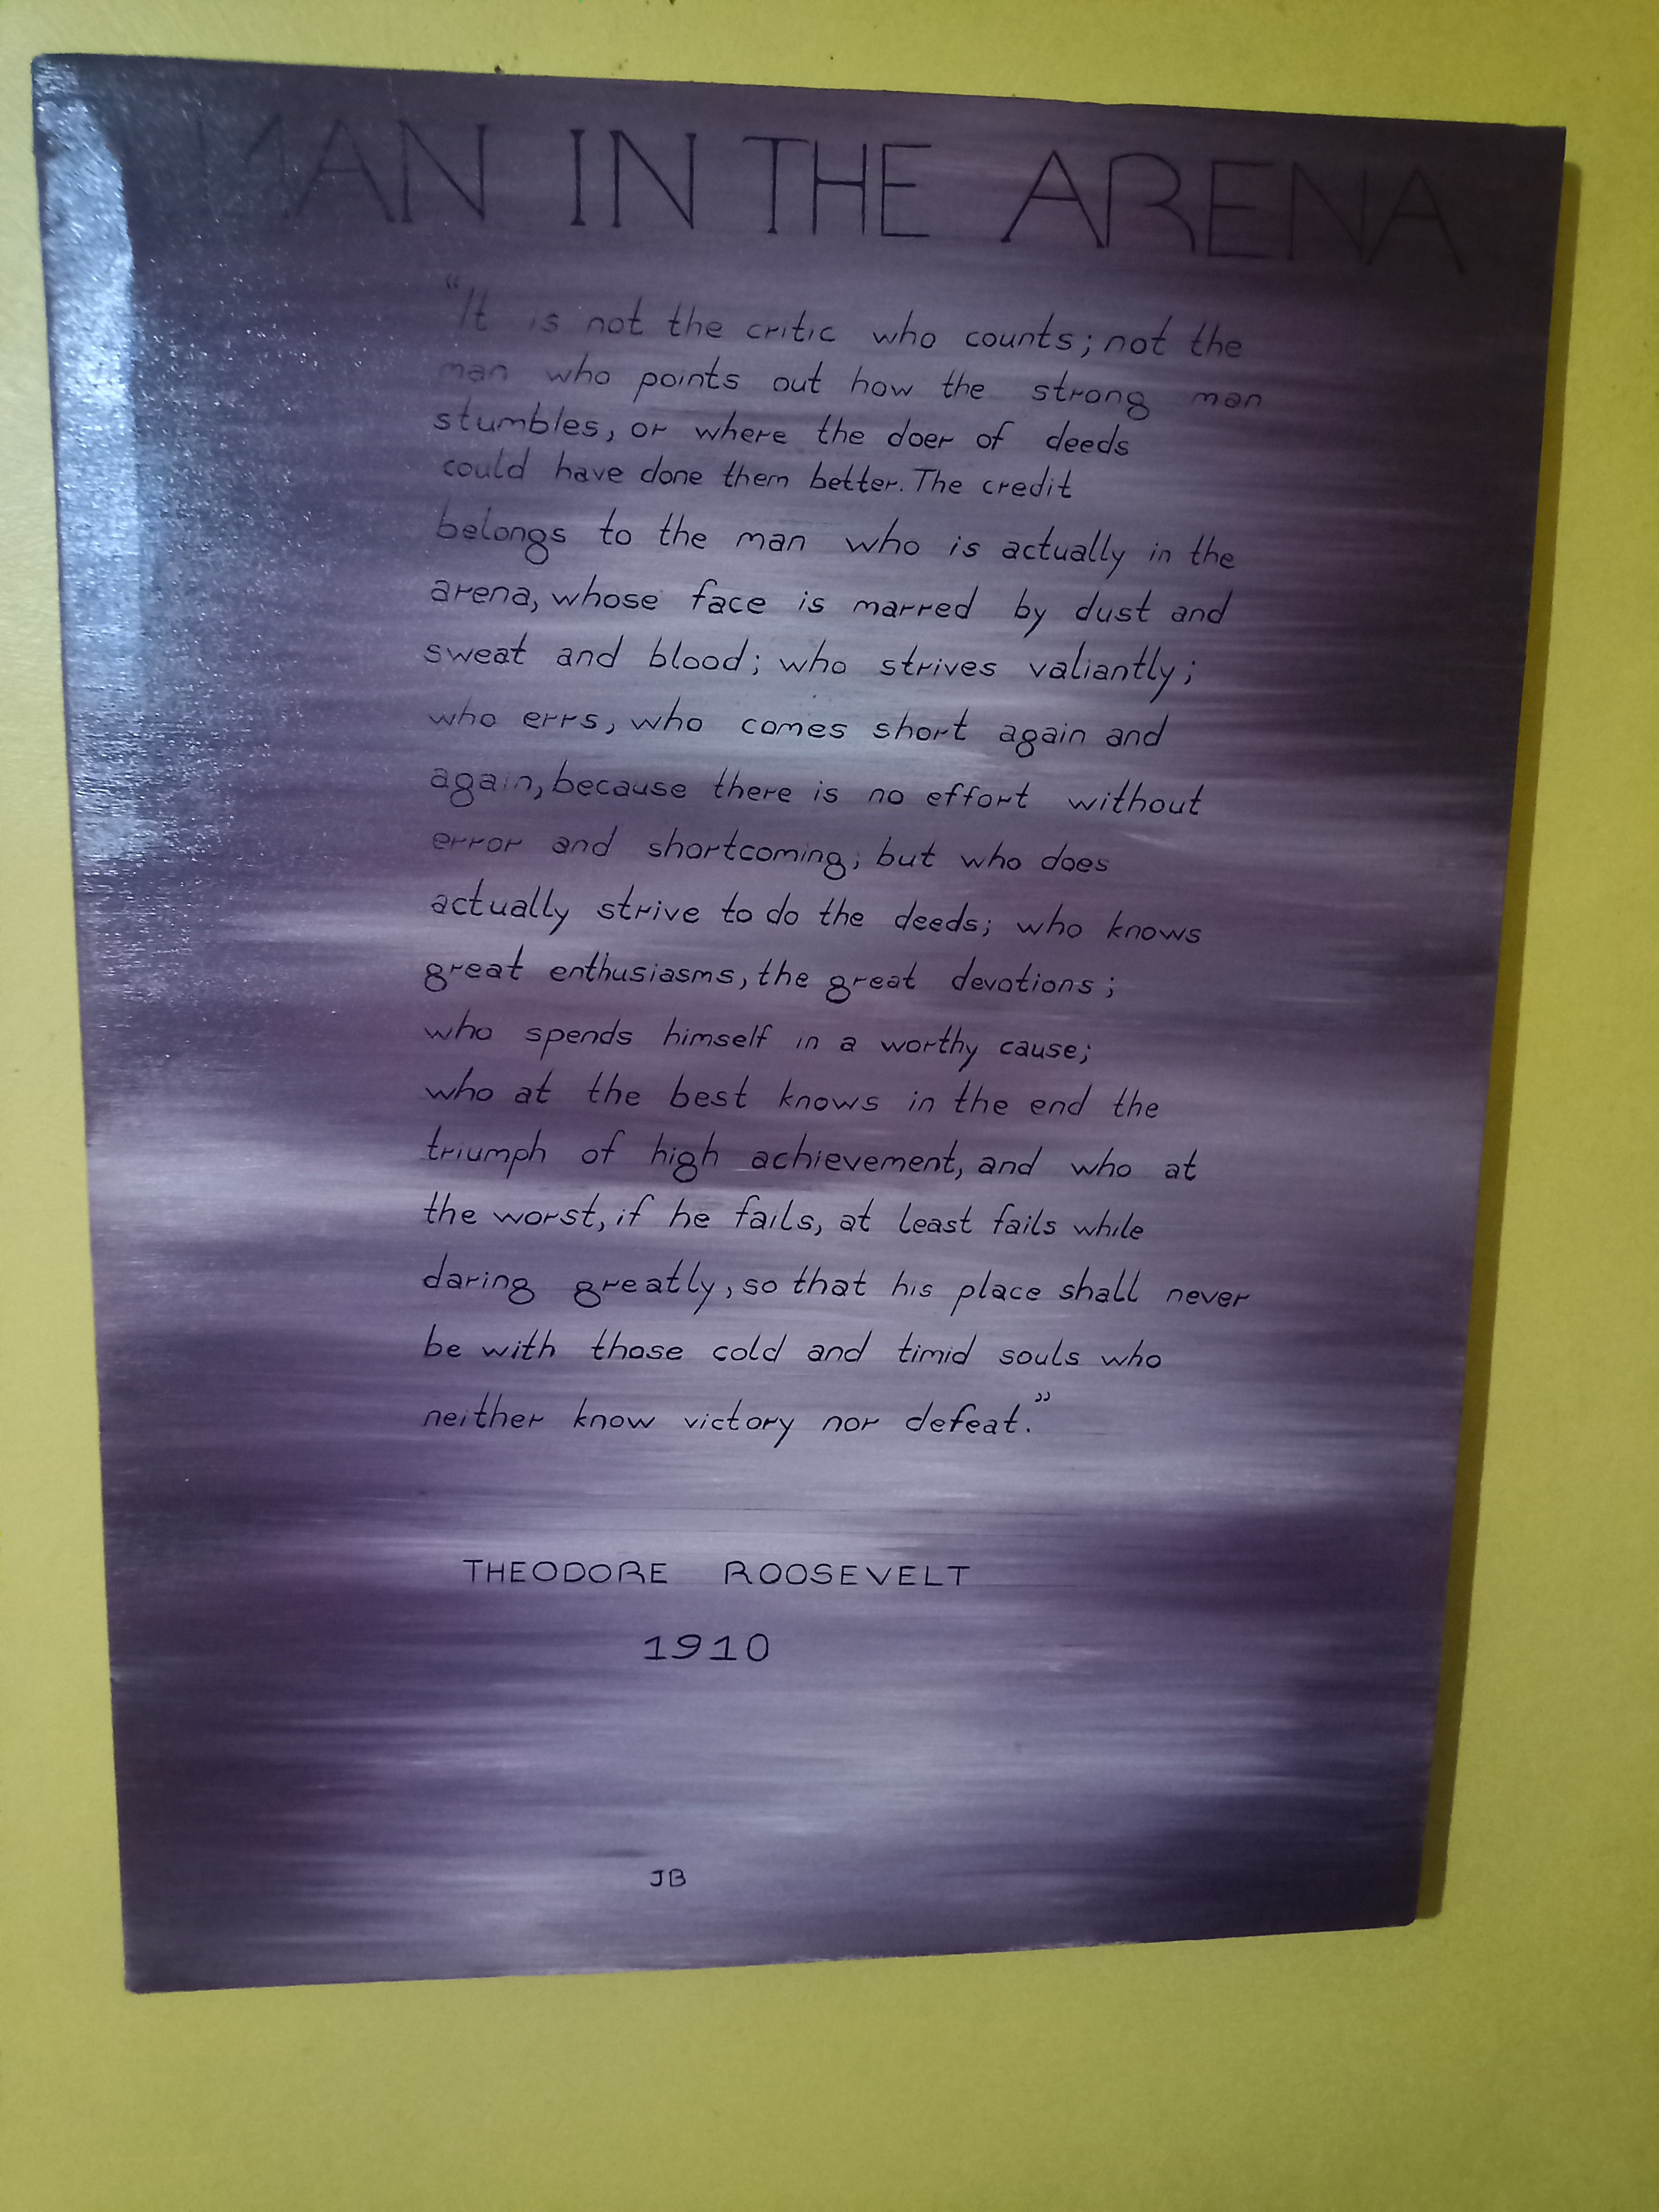 MAN IN THE ARENA
“It is not the critic who counts; not the
man who points out how the strong man
stumbles, or where the doer of deeds
could have done them better. The credit
belongs to the man who is actually in the
arena, whose face is marred by dust and
sweat and blood; who strives valiantly;
who errs, who comes short again and
again, because there is no effort without
error and shortcoming; but who does
actually strive to do the deeds; who knows
great enthusiasms, the great devotions;
who spends himself in a worthy cause;
who at the best knows in the end the
triumph of high achievement, and who at
the worst, if he fails, at least fails while
daring greatly, so that his place shall never
be with those cold and timid souls who
neither know victory nor defeat.”
THEODORE ROOSEVELT
1910
JB